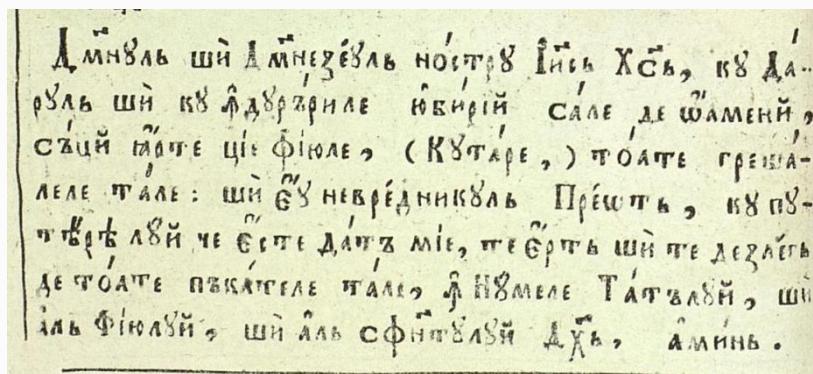 Дм҃нꙋль шѝ Дм҃незе́ꙋль но́стрꙋ І҆и҃сь Хс҃ъ, кꙋ Да́-
рꙋль шѝ кꙋ ꙟ҆дꙋръ́риле ю҆би́рїй са́ле де ѡ҆́аменй,
съ́цй ꙗ҆́рте цїе Фі́юле, (Кꙋта́ре,) то́ате греша́-
леле та́ле: шѝ є҆́ꙋ невре́дникꙋль Пре́ѡтъ, кꙋ пꙋ-
тѣ́рѣ лꙋй че є҆́сте да́тъ мїе, те є҆́ртъ шѝ те дезле́гь
де то́ате пъка́теле та́ле, ꙟ҆ Нꙋмеле Та́тълꙋй, шѝ
а҆́ль Фі́юлꙋй, шѝ а҆́ль сфн҃тꙋлꙋй Дх҃ъ, а҆ми́нь.